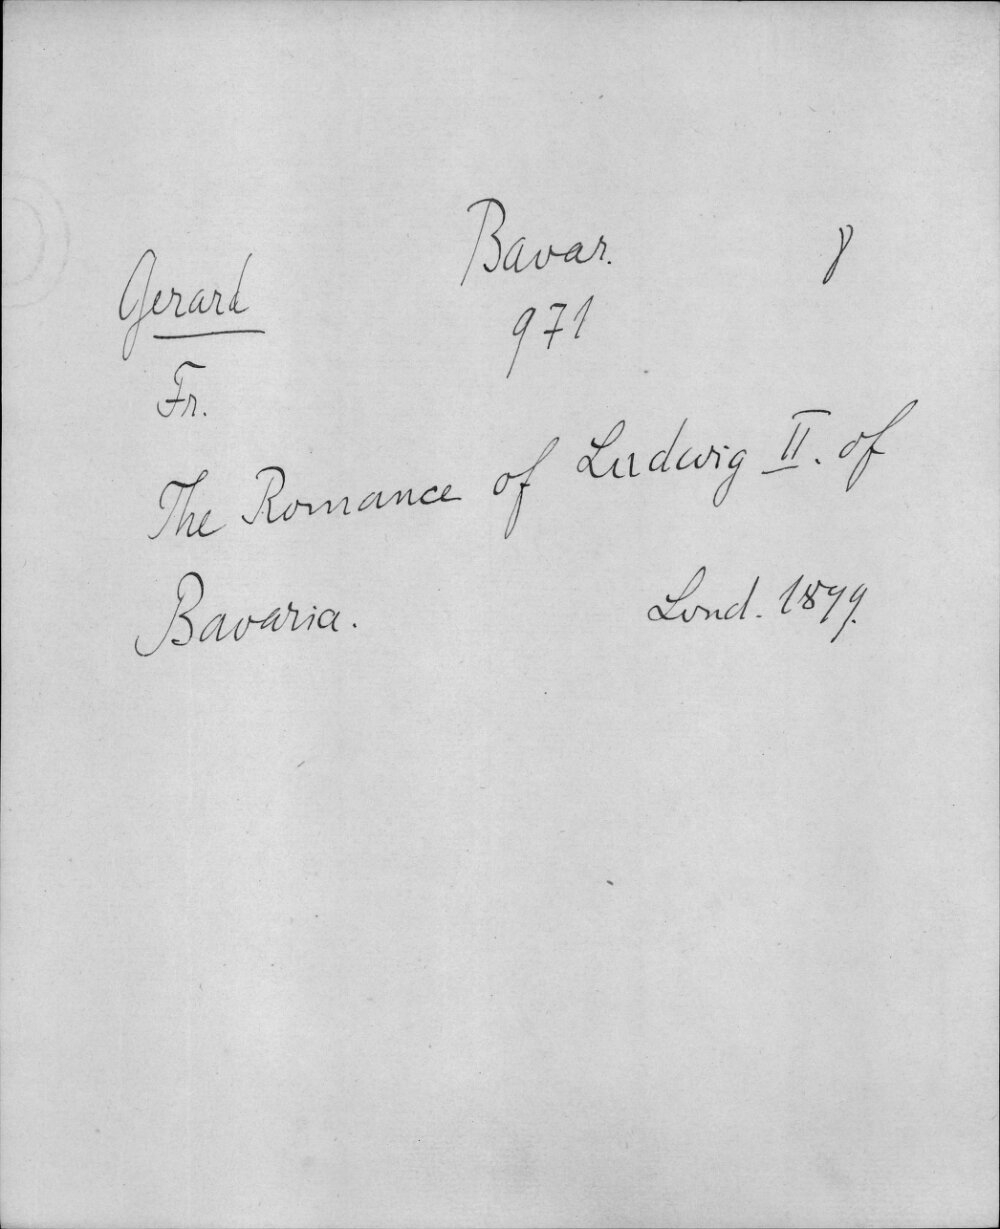 Bavar. 8
Gerard
971
Fr.
The Romance of Ludwig II. of
Bavaria. Lond. 1899.